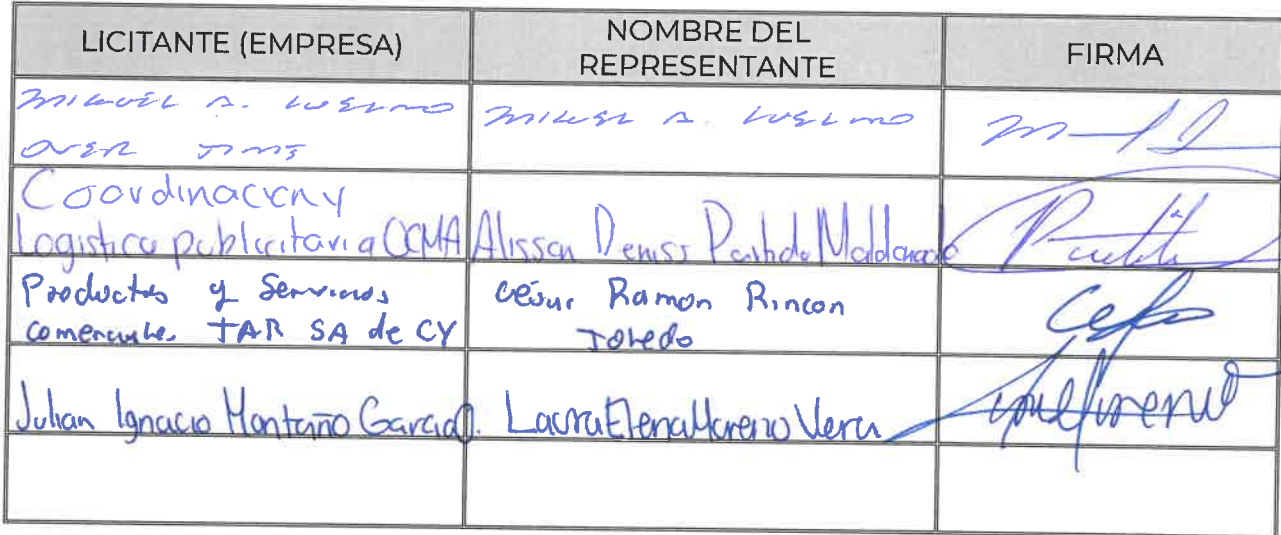 LICITANTE (EMPRESA)
NOMBRE DEL
REPRESENTANTE
FIRMA
MIGUEL A. LUELMO
OVER TIME
MIGUEL A. LUELMO
Coordinacion y
Logistica publicitaria
Alisson Deniss Partida Maldonado
Productos y Servicios
comerciales TAR SA de CV
César Ramon Rincon
Toledo
Julian Ignacio Montaño Garcia
Laura Elena Moreno Vera